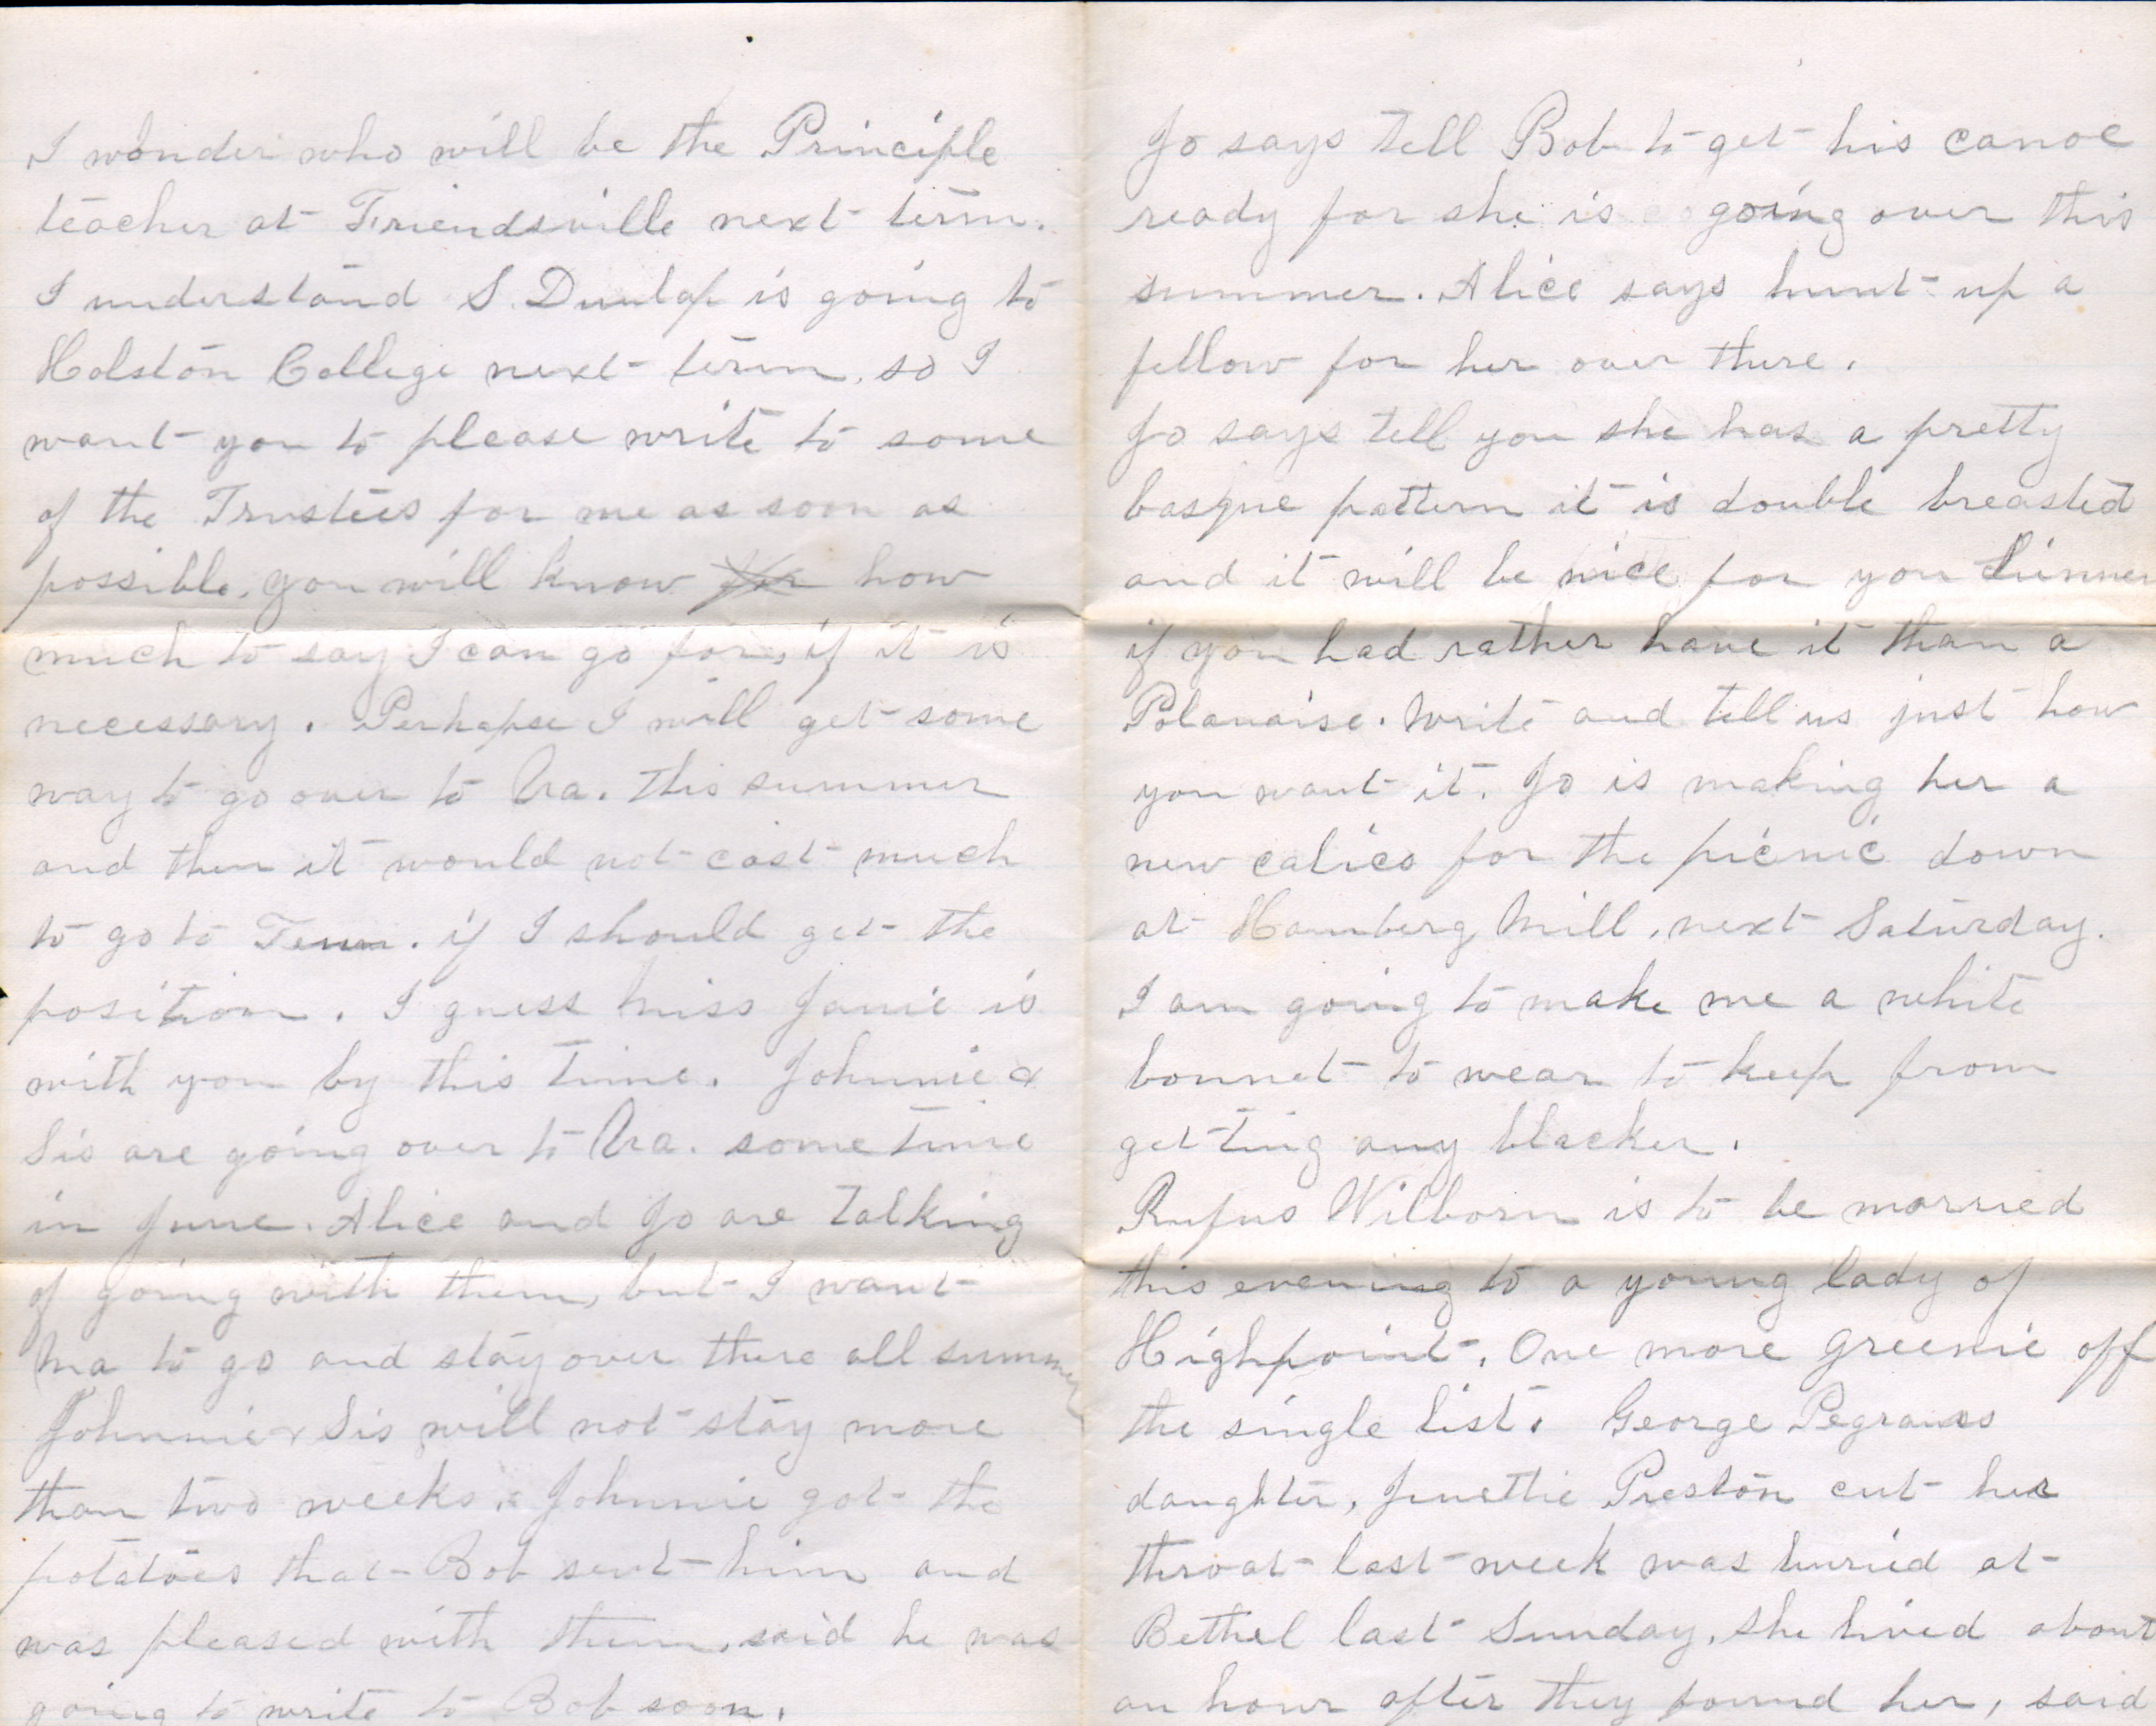 I wonder who will be the Principle
teacher at Friendsville next term.
I understand S. Dunlap is going to
Holston College next term, so I
want you to please write to some
of the Trustees for me as soon as
possible, you will know for how
much to say I can go for, if it is
necessary. Perhapse I will get some
way to go over to Va. this summer
and then it would not cost much
to go to Tenn. if I should get the
position. I guess Miss Janie is
with you by this time. Johnnie &
Sis are going over to Va. some time
in June. Alice and Jo are talking
of going with them, but I want
Ma to go and stay over there all summer
Johnnie & Sis will not stay more
than two weeks. Johnnie got the
potatoes that Bob sent him and
was pleased with them, said he was
going to write to Bob soon.
Jo says tell Bob to get his canoe
ready for she is going over this
summer. Alice says hunt up a
fellow for her over there.
Jo says tell you she has a pretty
basque pattern it is double breasted
and it will be nice for you
if you had rather have it than a
Polanaise. Write and tell us just how
you want it. Jo is making her a
new calico for the picnic down
at Hamberg Mill, next Saturday.
I am going to make me a white
bonnet to wear to keep from
getting any blacker.
Rufus Wilborn is to be married
this evening to a young lady of
Highpoint. One more greenie off
the single list. George Pegrams
daughter, Jinettie Preston cut her
throat last week was buried at
Bethel last Sunday, she lived about
an hour after they found her, said